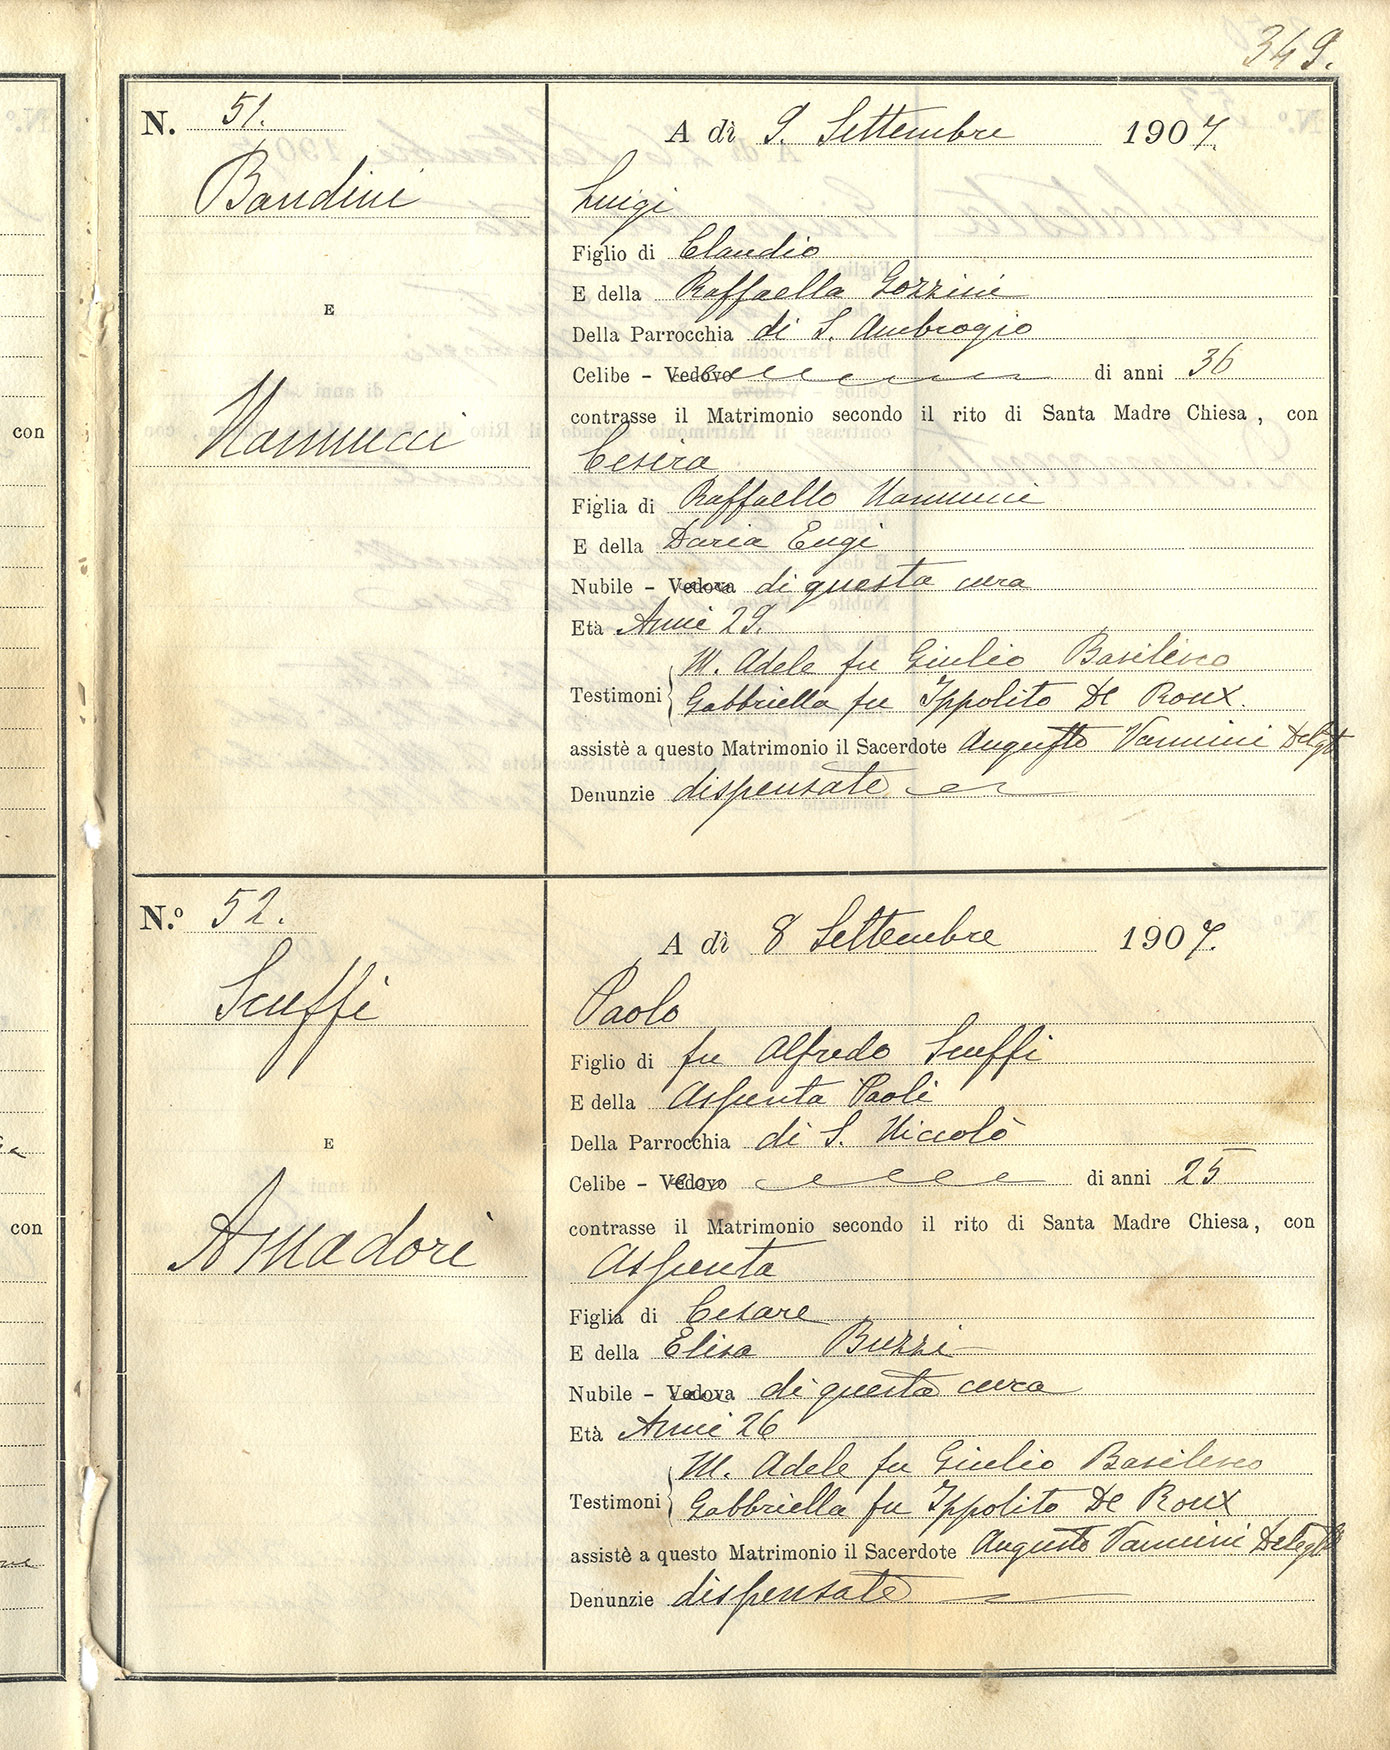 349.
N. 51.
A dì 9. Settembre 1907.
Bandini
Luigi
Figlio di Claudio
E della Raffaella Gozzini
E
Della Parrocchia di S. Ambrogio
Celibe - Vedovo di anni 36
contrasse il Matrimonio secondo il rito di Santa Madre Chiesa, con
con
Nannucci
Cesira
Figlia di Raffaello Nannucci
E della Daria Eugi
Nubile - Vedova di questa cura
Età Anni 29.
Testimoni
M. Adele fu Giulio Basilesco
Gabbriella fu Ippolito De Roux.
assistè a questo Matrimonio il Sacerdote Augusto Vannini
Denunzie dispensate
N.º 52.
A dì 8 Settembre 1907.
Scuffi
Paolo
Figlio di fu Alfredo Scuffi
E della Assunta Paoli
E
Della Parrocchia di S. Niccolò
Celibe - Vedovo di anni 25
contrasse il Matrimonio secondo il rito di Santa Madre Chiesa, con
con
Amadori
Assunta
Figlia di Cesare
E della Elisa Buzzi
Nubile - Vedova di questa cura
Età Anni 26
Testimoni
M. Adele fu Giulio Basilesco
Gabbriella fu Ippolito De Roux
assistè a questo Matrimonio il Sacerdote Augusto Vannini
Denunzie dispensate